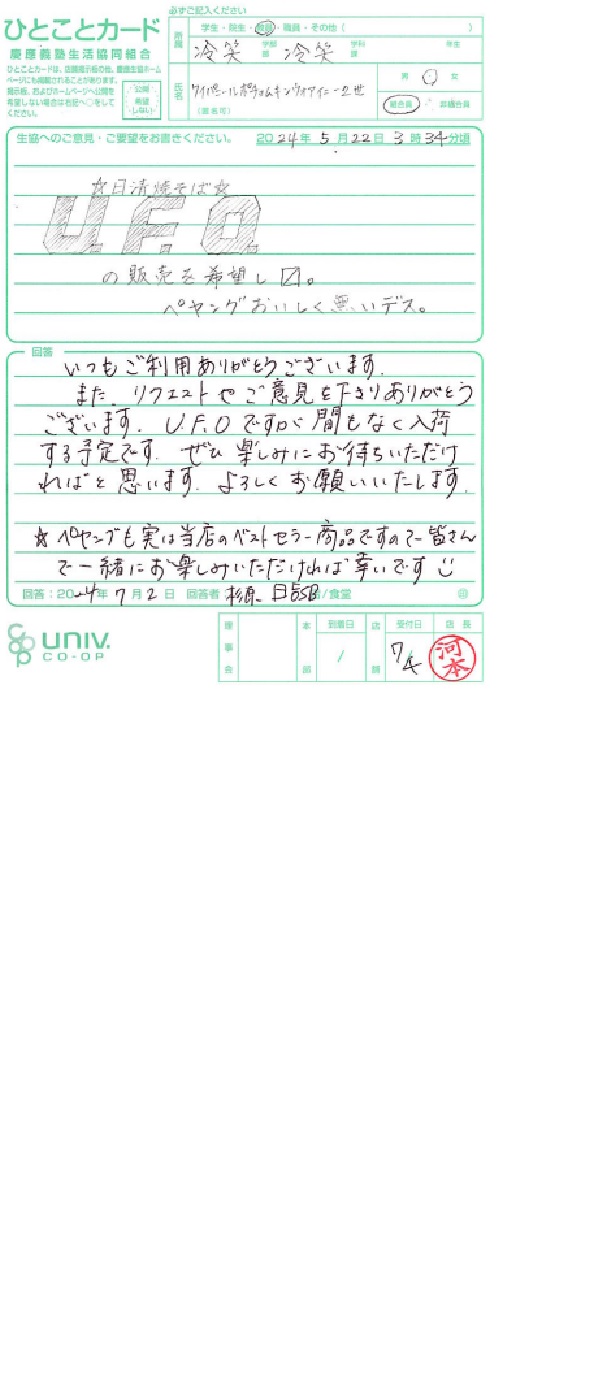 必ずご記入ください
ひとことカード
慶應義塾生活協同組合
ひとことカードは、店頭掲示板の他、慶應生協ホーム
ページにも掲載されることがあります。
掲示板、およびホームページへ公開を
希望しない場合は右記へ○をして
ください。
公開
希望
しない
所属
学生・院生・教員・職員・その他( )
冷笑 学部 冷笑 学科 年生
氏名
(匿名可)
男 ・ 女
組合員 ・ 非組合員
生協へのご意見・ご要望をお書きください。 2024年 5月22日 3時34分頃
☆日清焼そば☆
U.F.O.
の販売を希望し〼。
ペヤングおいしく無いデス。
回答
いつもご利用ありがとうございます。
また、リクエストやご意見を下さりありがとう
ございます。U.F.Oですが間もなく入荷
する予定です。ぜひ楽しみにお待ちいただけ
ればと思います。よろしくお願いいたします。
☆ペヤングも実は当店のベストセラー商品ですので皆さん
で一緒にお楽しみいただければ幸いです
回答:2024年 7月2日 回答者 杉原 日吉SB /食堂
UNIV.
CO-OP
理事会
本部
到着日
/
店舗
受付日
7/4
店長
河本